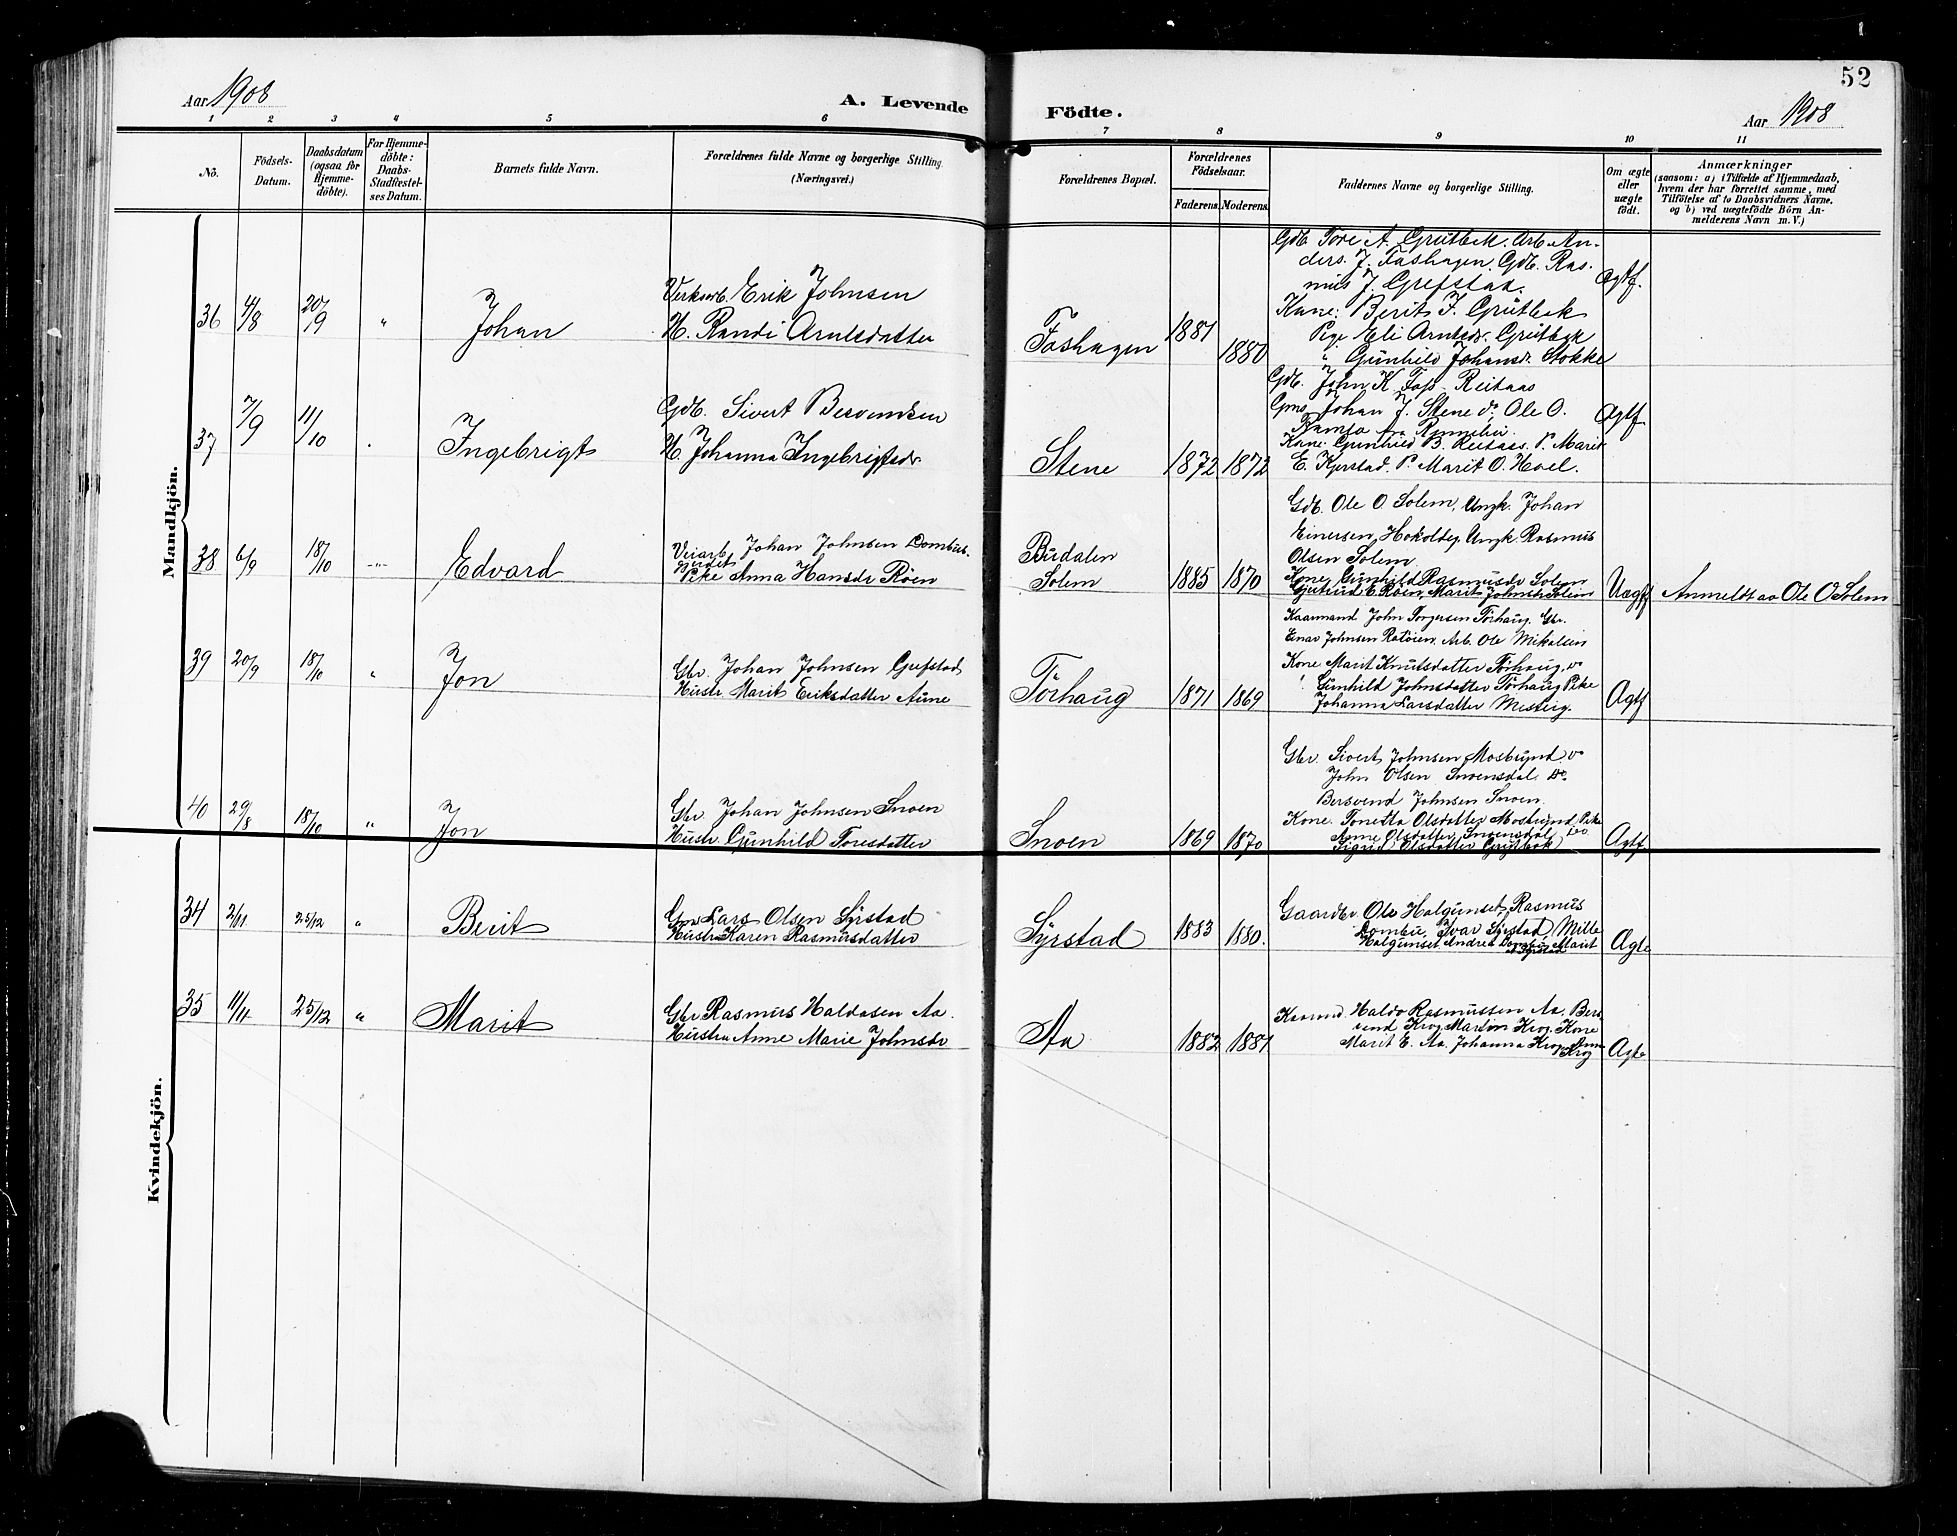 52
Aar 1908
A. Levende
Födte.
Aar 1908
1 2 3 4 5 6 7 8 9 10 11
No.
Födsels-
Datum.
Daabsdatum
(ogsaa for
Hjemme-
döbte).
For Hjemme-
döbte:
Daabs-
Stadfæstel-
ses Datum.
Barnets fulde Navn.
Forældrenes fulde Navne og borgerlige Stilling.
(Næringsvei.)
Forældrenes Bopæl.
Forældrenes
Födselsaar.
Faderens. Moderens.
Faddernes Navne og borgerlige Stilling.
Om ægte
eller
uægte
födt.
Anmærkninger
(saasom: a) i Tilfælde af Hjemmedaab,
hvem der har forrettet samme, med
Tilföielse af to Daabsvidners Navne,
og b) ved uægtefödte Börn An-
melderens Navn m. V.)
Mandkjön.
36 4/8 20/9 " Johan
Verksarb. Erik Johnsen
H. Randi Arntsdatter
Foshagen 1881 1880
Gdb. Tore A. Grutbek. Arb. An-
ders. J. Foshagen. Gdb. Ras-
mus J. Grefstaa.
Kone: Berit J. Grutbek
Pige Eli Arntsdr. Grutbek
" Gunhild Johansdr. Stokke
Ægtf.
37 7/9 11/10 " Ingebrigt
Gdb. Sivert Besvendsen
H. Johanna Ingebrigtsdr
Stene 1872 1872
Gdb. John K. Foss Reitaas
Gms Johan J. Stene do Ole O.
Ramsø fra Rennebu.
Kone: Gunhild B. Reitaas. P. Marit
E. Kjerstad. P. Marit O. Hoel.
Ægtf
38 6/9 18/10 -"- Edvard
Veiarb. Johan Johnsen Dombus-
gjerdet
Pike Anna Hansdr Røen
Budalen
Solem 1885 1870
Gdb. Ole O. Solem, Ungk. Johan
Einersen Hokoldeg, Ungk Rasmus
Olsen Solem
Kone Gunhild Rasmusdr Solem
Gjertrud E. Røen, Marit Johnsdr Solem
Uægtf
Anmeldt av Ole O Solem
39 20/9 18/10 " Jon
Gbr. Johan Johnsen Grefstad
Hustr. Marit Eriksdatter Aune
Torhaug 1871 1869
Kaarmand John Torgersen Torhaug. Gbr.
Einar Johnsen Ratøien. Arb. Ole Mikalsen
Kone Marit Knutsdatter Torhaug. do
" Gunhild Johnsdatter Torhaug Pike
Johanna Larsdatter Meslieg.
Ægtf
40 29/8 18/10 " Jon
Gbr. Johan Johnsen Snoen
Hustr. Gunhild Toresdatter
Snoen 1869 1870
Gbr. Sivert Johnsen Mosbrynd do
John Olsen Snoensdal do.
Bersvend Johnsen Snoen.
Kone. Tonetta Olsdatter Mosbrynd Pike
Anne Olsdatter Snoensdal do
Sigrid Olsdatter Grutbek
Ægtf.
Kvindekjön.
34 2/11 25/12 " Berit
Gm. Lars Olsen Syrstad
Hustr Karen Rasmusdatter
Syrstad 1883 1880.
Gaardbr. Ole Halgunset, Rasmus
Dombu, Ivar Syrstad, Mille
Halgunset Andrea Dombu, Marit
Syrstad
Ægte
35 11/11 25/12 " Marit
Gbr Rasmus Haldosen Aa.
Hustru Anne Marie Johnsdr
Aa 1882 1881
Kaarmd. Haldo Rasmussen Aa. Bers-
vend Krog Martin Krog. Kone
Marit E. Aa. Johanna Krog, Anne
Krog
Ægte